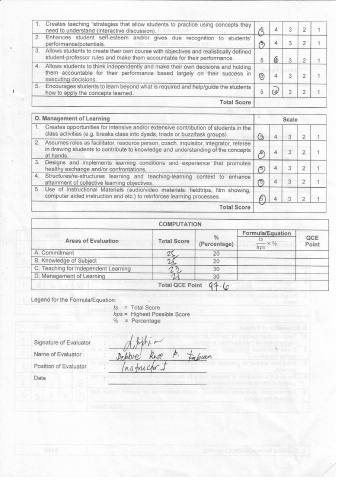 1. Creates teaching strategies that allow students to practice using concepts they
need to understand (interactive discussion). 5 4 3 2 1
2. Enhances student self-esteem and/or gives due recognition to students'
performance/potentials. 5 4 3 2 1
3. Allows students to create their own course with objectives and realistically defined
student-professor rules and make them accountable for their performance. 5 4 3 2 1
4. Allows students to think independently and make their own decisions and holding
them accountable for their performance based largely on their success in
executing decisions. 5 4 3 2 1
5. Encourages students to learn beyond what is required and help/guide the students
how to apply the concepts learned. 5 4 3 2 1
Total Score
D. Management of Learning Scale
1. Creates opportunities for intensive and/or extensive contribution of students in the
class activities (e.g. breaks class into dyads, triads or buzz/task groups). 5 4 3 2 1
2. Assumes roles as facilitator, resource person, coach, inquisitor, integrator, referee
in drawing students to contribute to knowledge and understanding of the concepts
at hands. 5 4 3 2 1
3. Designs and implements learning conditions and experience that promotes
healthy exchange and/or confrontations. 5 4 3 2 1
4. Structures/re-structures learning and teaching-learning context to enhance
attainment of collective learning objectives. 5 4 3 2 1
5. Use of Instructional Materials (audio/video materials: fieldtrips, film showing,
computer aided instruction and etc.) to reinforces learning processes. 5 4 3 2 1
Total Score
COMPUTATION
Areas of Evaluation Total Score % (Percentage) Formula/Equation ts/hps × % QCE Point
A. Commitment 25 20
B. Knowledge of Subject 25 20
C. Teaching for Independent Learning 23 30
D. Management of Learning 30
Total QCE Point 97.6
Legend for the Formula/Equation:
ts = Total Score
hps = Highest Possible Score
% = Percentage
Signature of Evaluator
Name of Evaluator Rose
Position of Evaluator Instructor I
Date